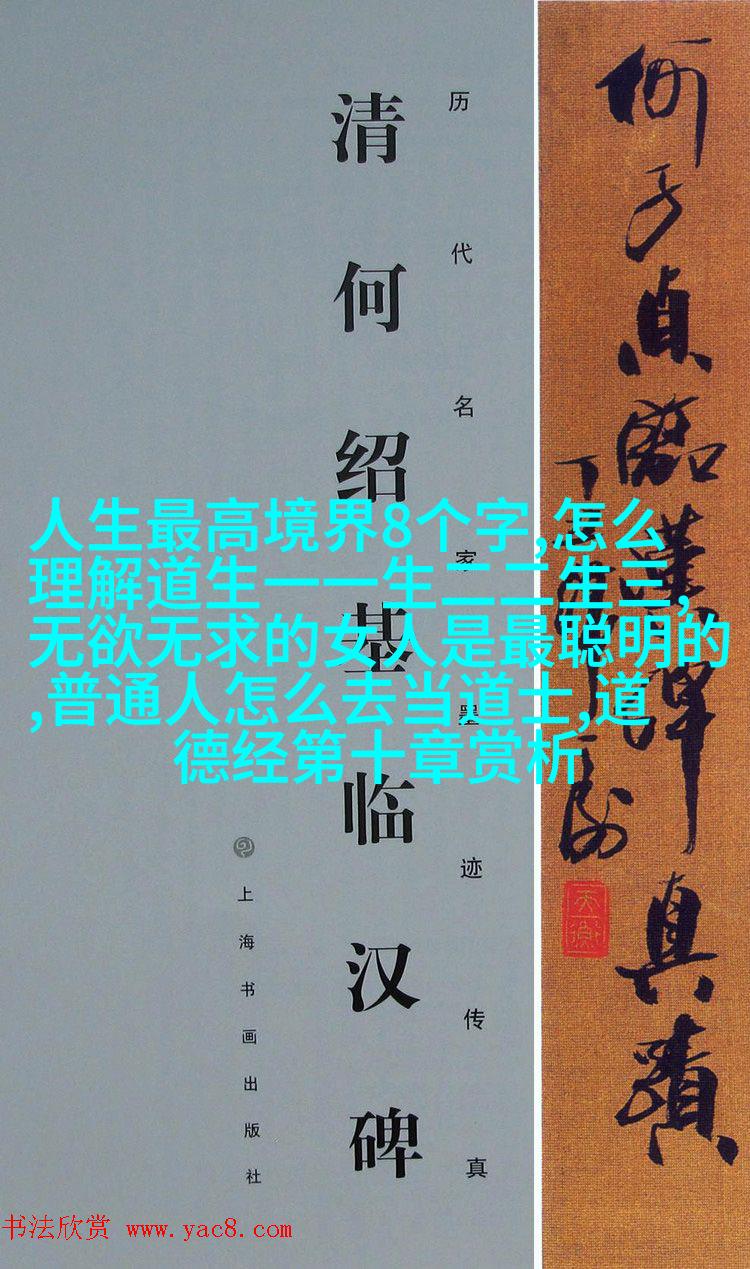 何子貞臨漢碑真蹟
历代名家墨迹传真
清何绍基临汉碑
上海书画出版社
人生最高境界8个字,怎么
理解道生一一生二二生三,
无欲无求的女人是最聪明的
,普通人怎么去当道士,道
德经第十章赏析
书法欣赏 www.yac8.com